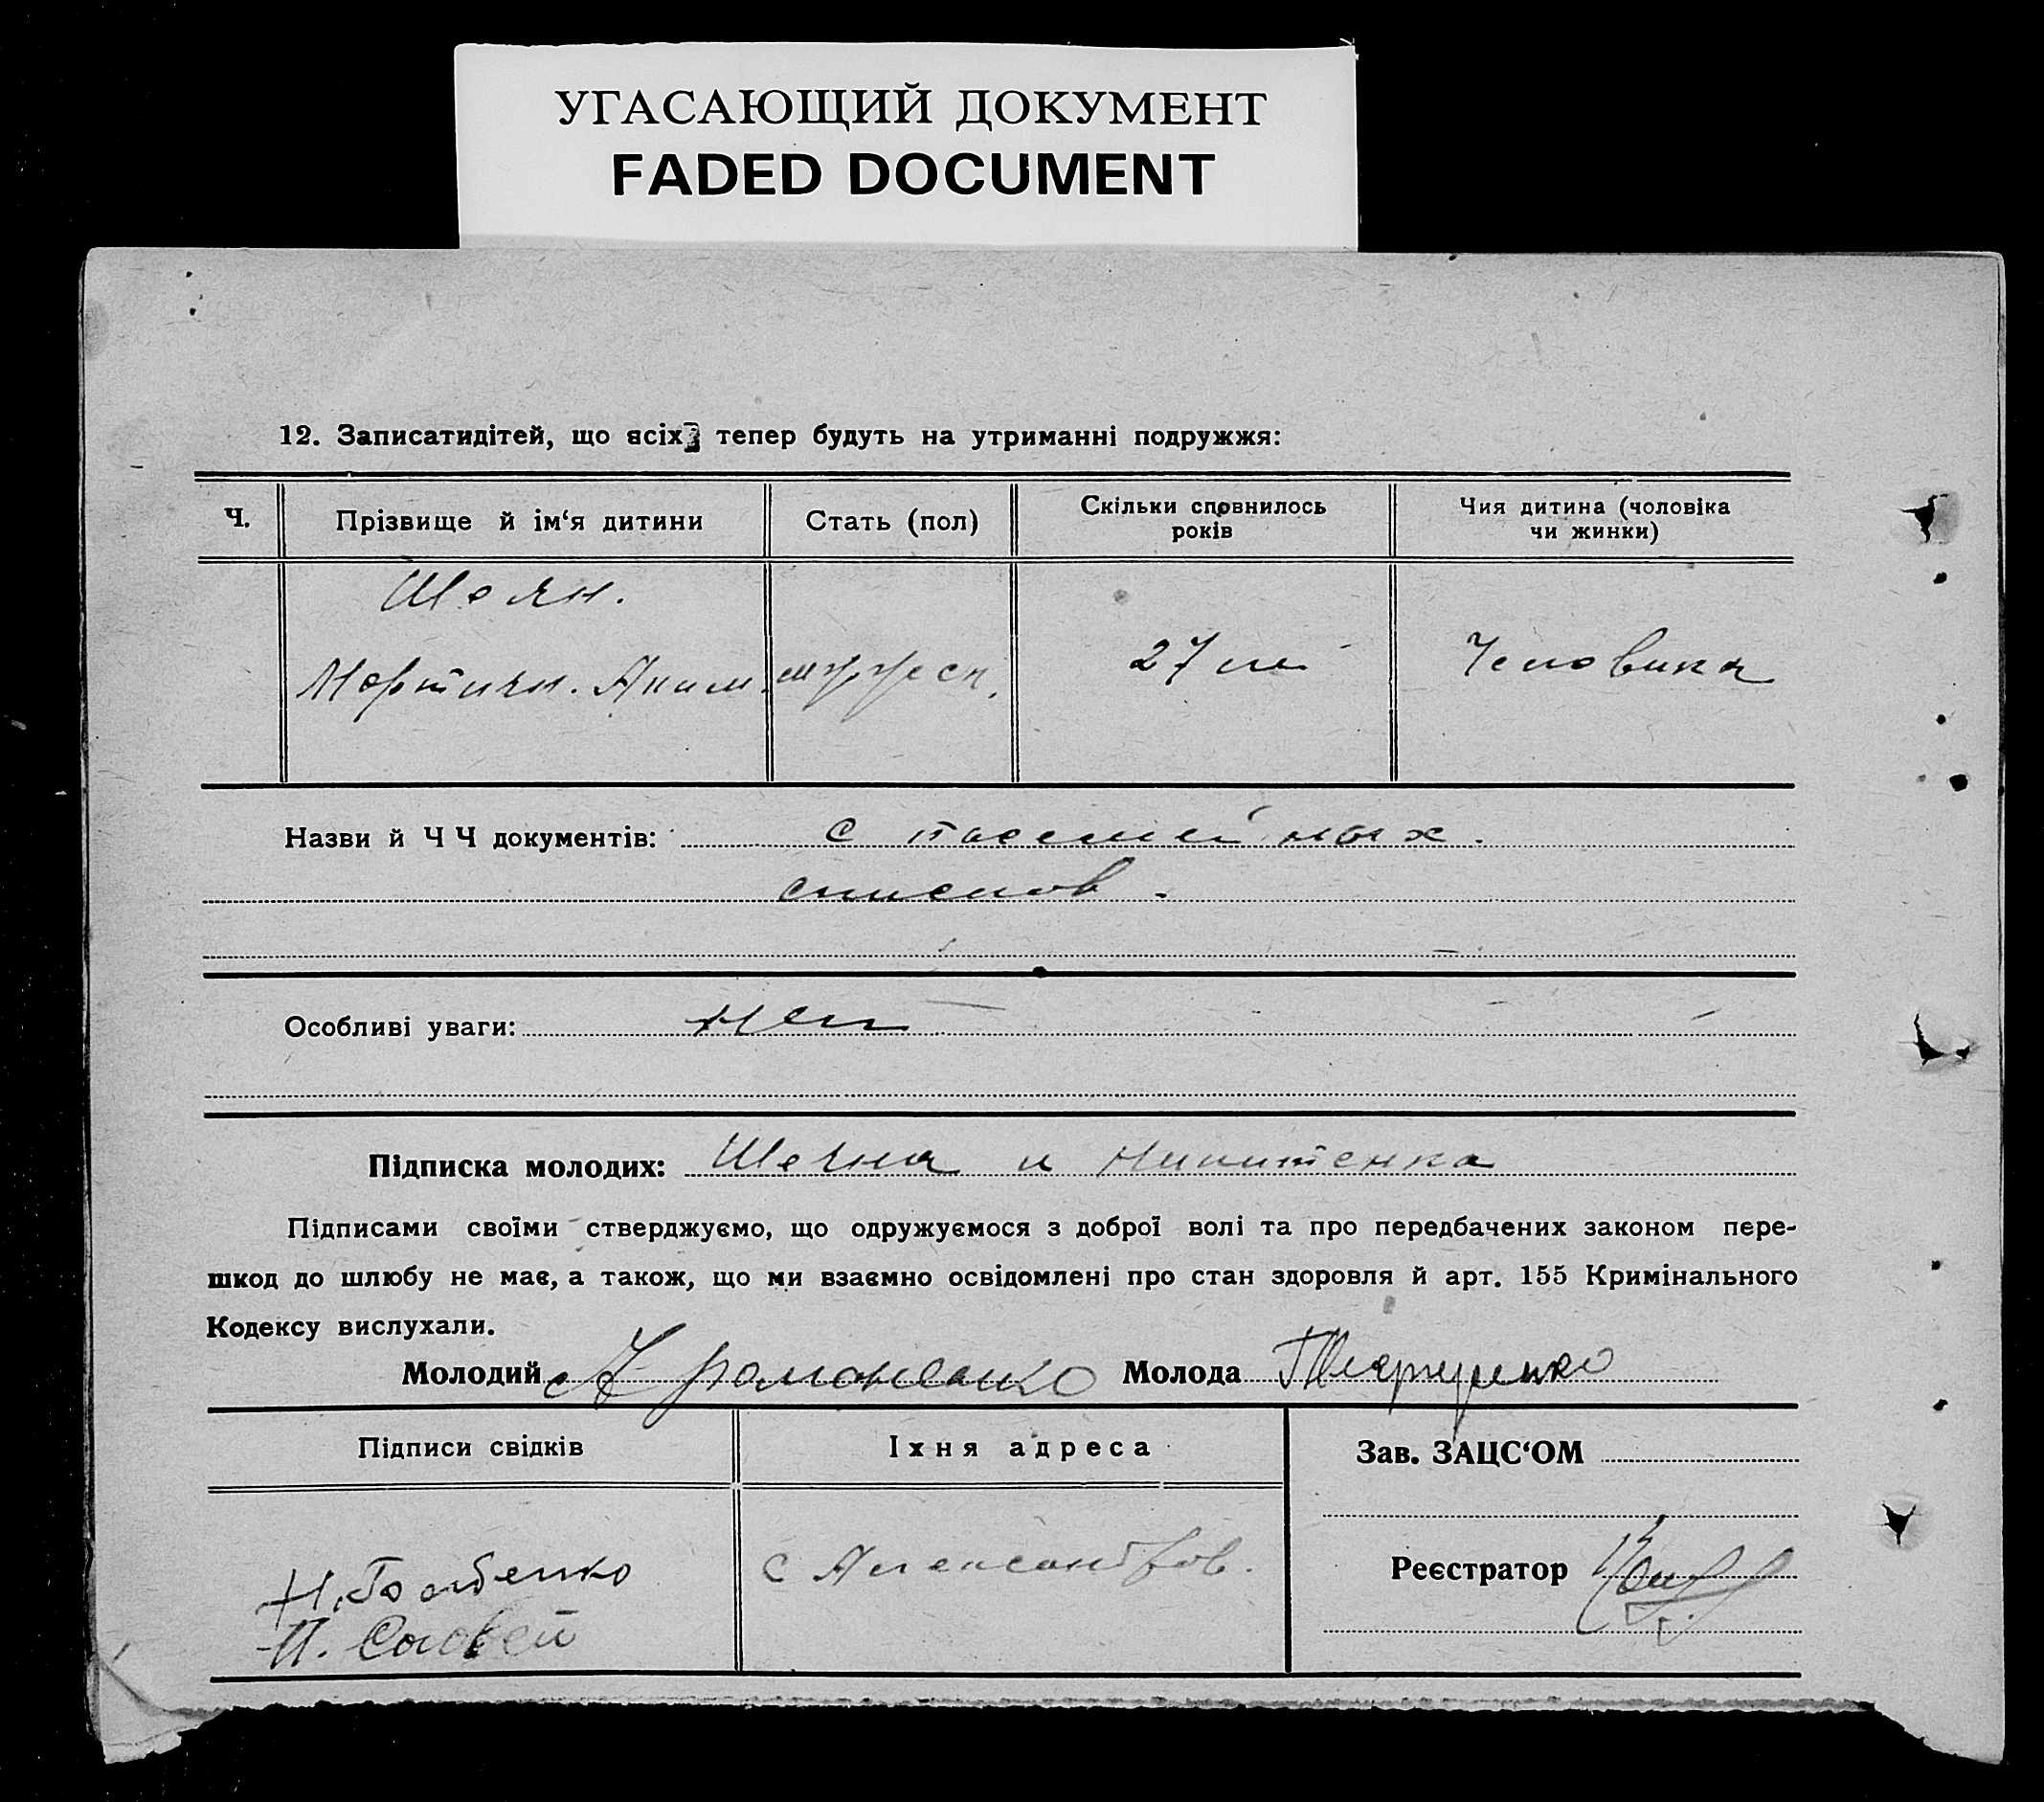 УГАСАЮЩИЙ ДОКУМЕНТ
FADED DOCUMENT
12. Записатидітей, що всіх тепер будуть на утриманні подружжя:
Ч. Прізвище й ім‘я дитини Стать (пол) Скільки сповнилось років Чия дитина (чоловіка чи жинки)
27 Человика
Назви й Ч Ч документів: с посемейных.
списков.
Особливі уваги: нет
Підписка молодих: и Никитенка
Підписами своїми стверджуємо, що одружуємося з доброї волі та про передбачених законом пере-
шкод до шлюбу не має, а також, що ми взаємно освідомлені про стан здоровля й арт. 155 Кримінального
Кодексу вислухали.
Молодий Молода
Підписи свідків Їхня адреса Зав. ЗАЦС‘ОМ
с Александров.
Реєстратор
П. Соловей